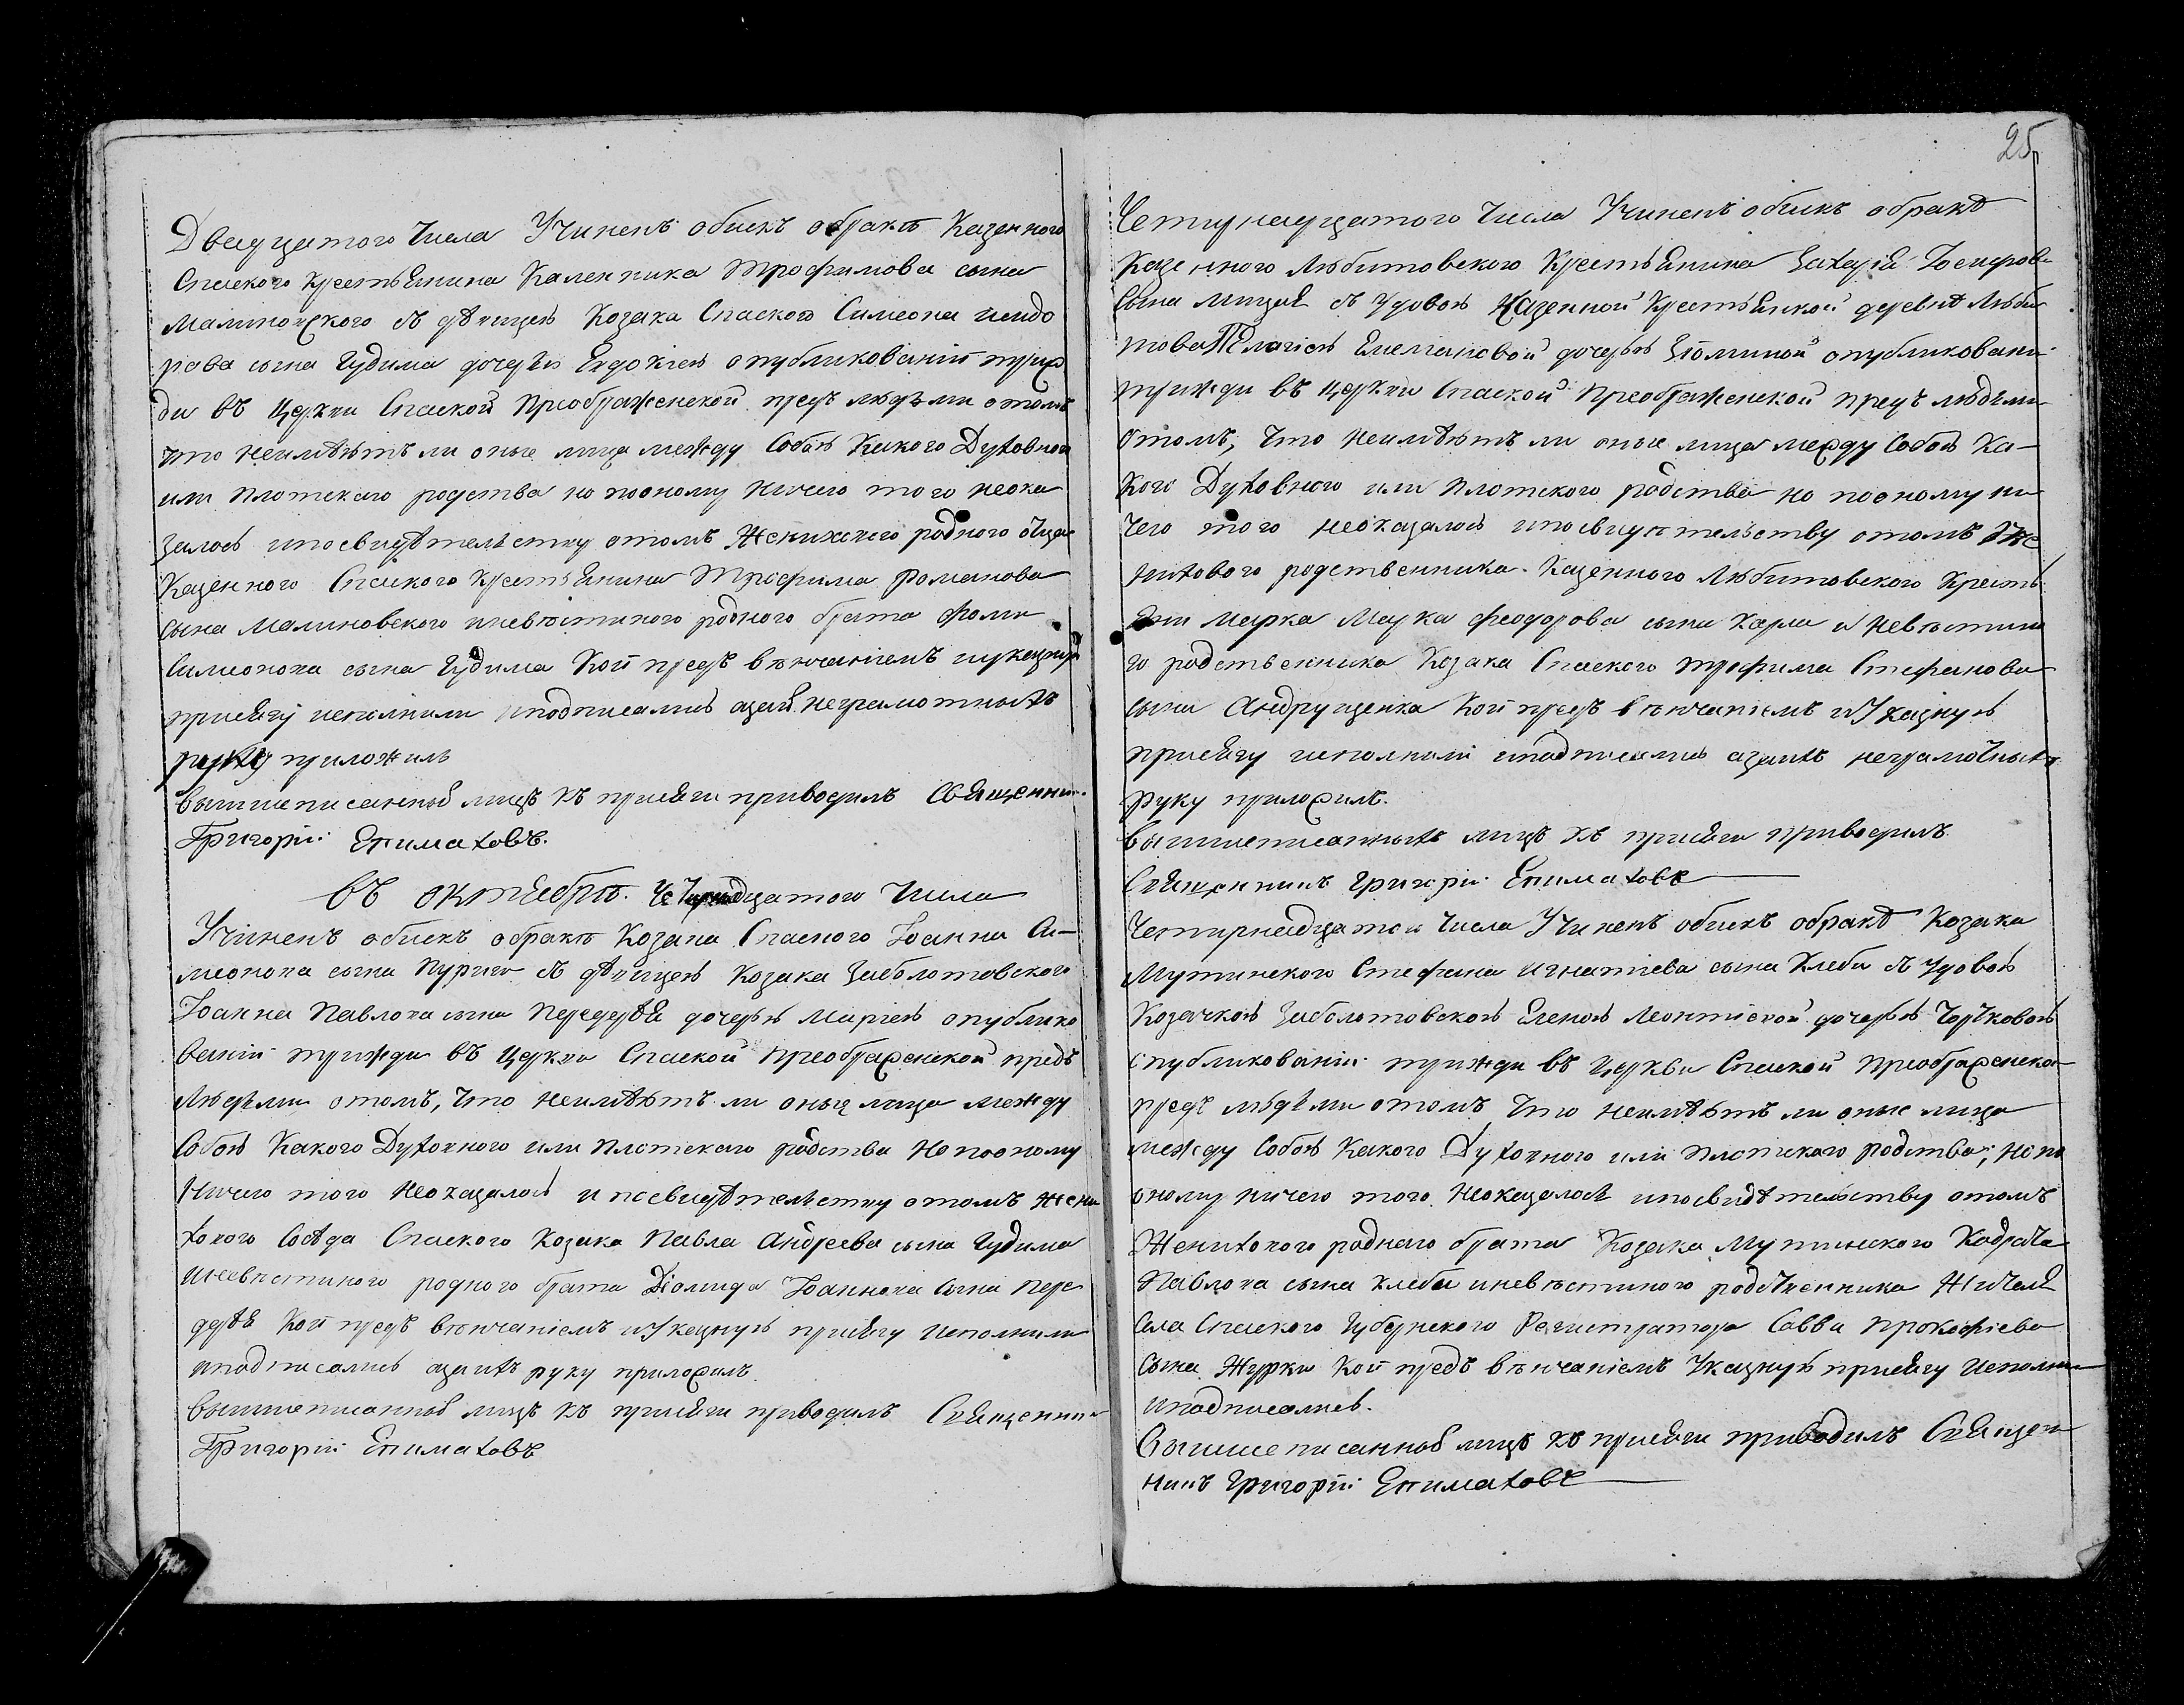 Двадцатого Числа Учиненъ обискъ обракѣ Казенного
Спаского Крестьянина Каленника Трофимова сына
Малиновского съ дѣвицею Козака Спаского Симеона исидо
рова сына Гудима дочерью Евдокіею опубликованій триж
ди въ Церкви Спаской Преображенской предъ людьми отомъ
что неимѣютъ ли оные лица между Собою Какого Духовного
или плотского родства но пооному ничего того неока
залось ипосвидѣтельству отомъ Жениховаго родного отца
Казенного Спаского Крестьянина Трофима Романова
сына Малиновского иневѣстиного родного брата Фоми
Симеонова сына Гудима Кои предъ вѣнчаніемъ иуказную
присягу исполнили иподписались азанихъ неграмотныхъ
руку приложилъ
вышшеписанныхъ лицъ къ присяги приводилъ Священни
Григорій Епимаховъ.
въ октябрѣ. Четирнадцатого Числа
Учиненъ обискъ обракѣ Козака Спаского Іоанна Си-
меонова сына Пуриго съ дѣвицею Козака Заболотовского
Іоанна Павлова сына Передерѣя дочерью Маріею опублико
ваній трижди въ Церкви Спаской Преображенской предъ
Людьми отомъ, что неимѣютъ ли оныя лица между
Собою Какого Духовного или Плотского родства Но пооному
Ничего того Неоказалось и посвидѣтельству отомъ жени
хового Сосѣда Спаского Козака Павла Андреева сына Гудима
иневѣстиного родного брата Діомида Іоаннова сына пере
дерѣя Кои предъ вѣнчаніемъ иУказную присягу исполнили
иподписались азанихъ руку приложилъ
вышшеписанныхъ лицъ къ присяги приводилъ Священни
Григорій Епимаховъ
25
Четирнадцатого Числа Учиненъ обискъ обракѣ
Казенного Любитовского Крестьянина Захарія Іосифова
сына съ Удовою Казенной Крестьянкой деревнѣ Люби
това Пелагіею Емелановой дочерью опубликовани
трижди въ церкви Спаской Преображенской предъ людьми
отомъ, что неимѣютъ ли оные лица между Собою Ка-
кого Духовного или Плотского родства но пооному ни
чего того неоказалось ипосвидѣтельству отомъ же
нихового родственника Казенного Любитовского Кресть
Марка Марка Феодорова сына и Невѣстино
го родственника Козака Спаского Трофима Стефанова
сына Андрущенка Кои предъ вѣнчаніемъ иУказную
присягу исполнили иподписались азанихъ неграмотныхъ
руку приложилъ.
вышшеписанныхъ лицъ къ присяги приводилъ
Священникъ Григорій Епимаховъ
Четирнадцатого Числа Учиненъ обискъ обракѣ Козака
Мутинского Стефана Игнатіева сына Хлеба съ Удовою
Козачкою Заболотовскою Еленою Леонтіевой дочерью
опубликованіи трижди въ Церкви Спаской Преображенской
предъ людьми отомъ что неимѣютъ ли оные лица
между Собою Какого Духовного или Плотскаго родства, но по
оному ничего того Неоказалось ипосвидѣтельству отомъ
Женихового роднаго брата Козака Мутинского Кодрата
Павлова сына Хлеба иневѣстиного родственника Жителя
Села Спаского Губернского Регистратора Савва Прокофіева
сына Журки Кои предъ вѣнчаніемъ Указную присягу исполни
иподписались.
вышшеписанныхъ лицъ къ присяги приводилъ Священ
никъ Григорій Епимаховъ